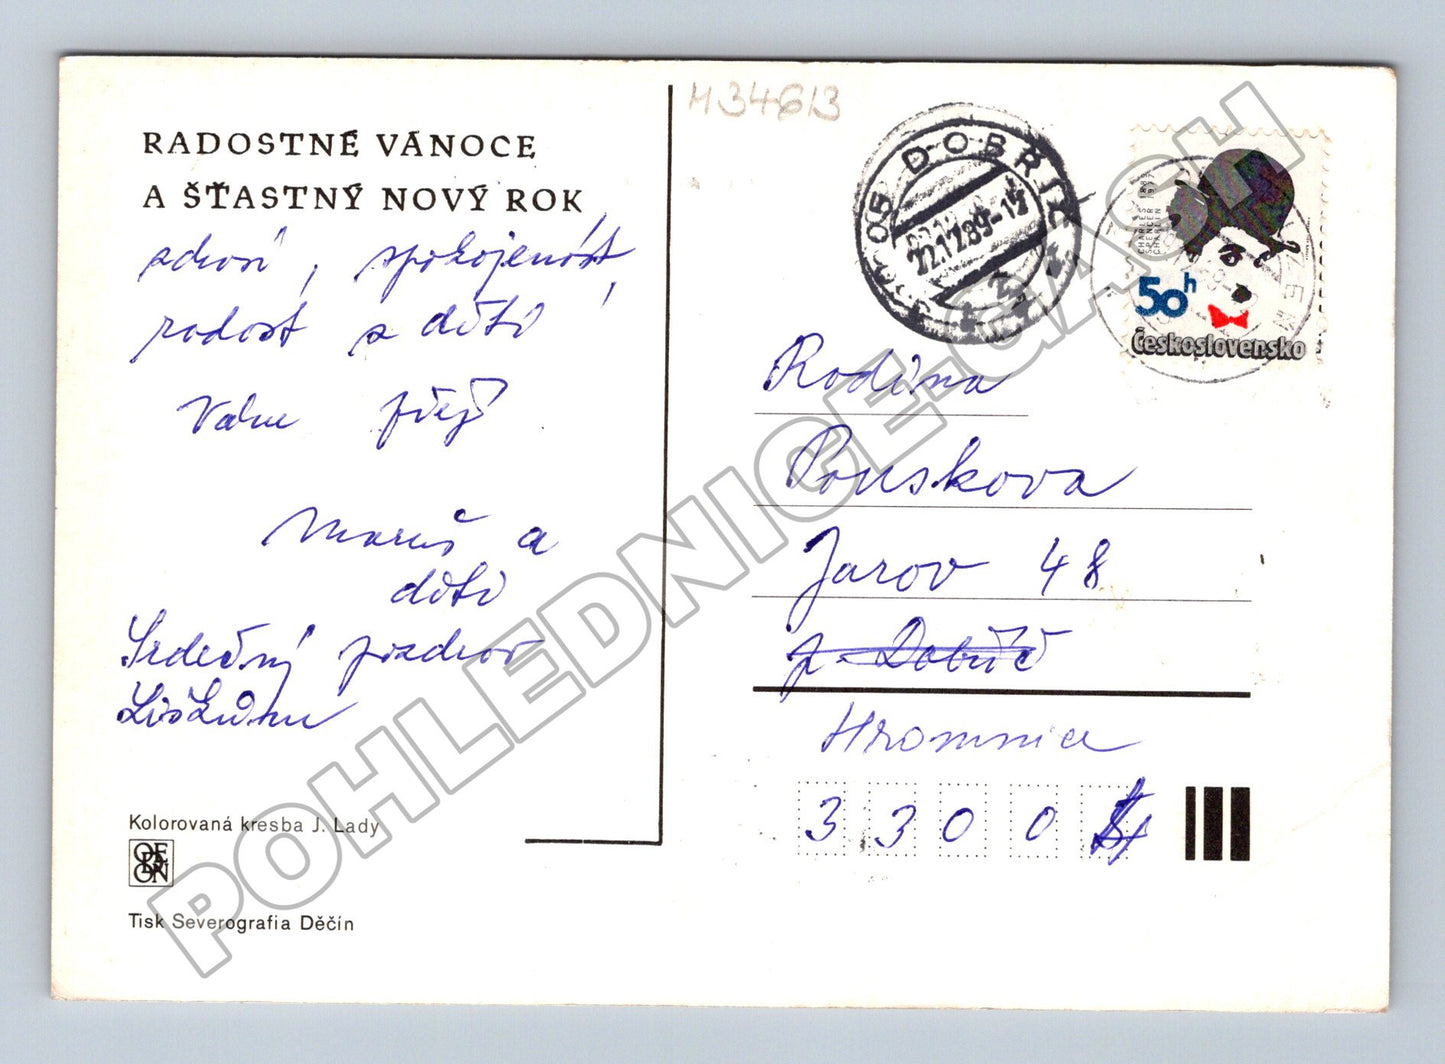 M34613
RADOSTNÉ VÁNOCE
A ŠŤASTNÝ NOVÝ ROK
zdraví, spokojenost
radost z dětí
Vám přejí
Maruš a
děti
Srdečný pozdrav
Kolorovaná kresba J. Lady
ORBIS
Tisk Severografia Děčín
05 DOBŘÍ
22.12.89-12
CHARLES 1889
SPENCER 1977
CHAPLIN
50h
Československo
Rodina
Pouskova
Jarov 48
p. Dobříč
Hromnice
3 3 0 0
POHLEDNICE-GASH